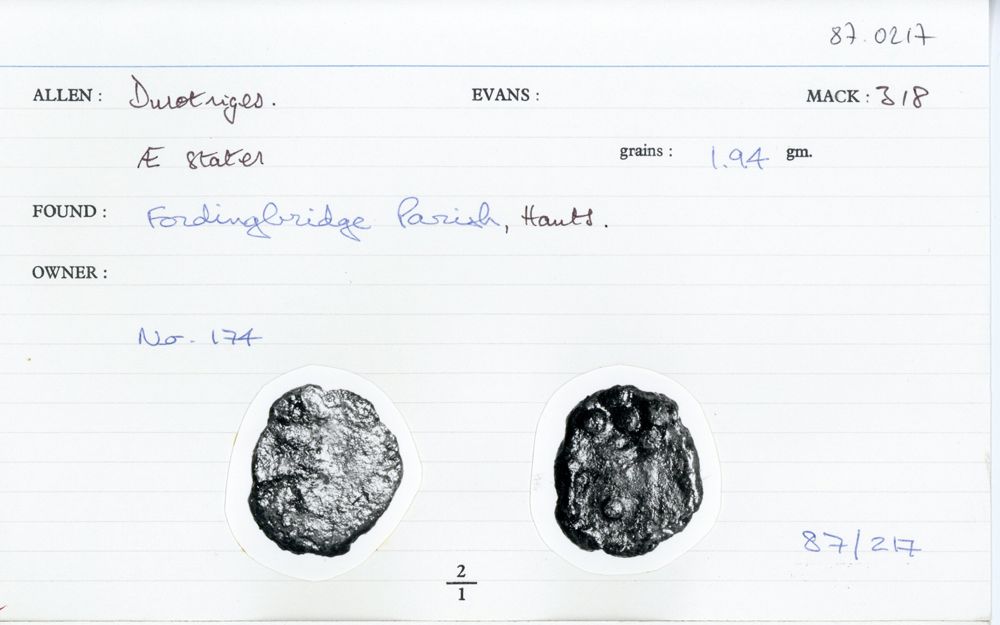 87.0217
ALLEN : Durotriges. EVANS : MACK : 318
Æ stater grains : 1.94 gm.
FOUND : Fordingbridge Parish, Hants.
OWNER :
No. 174
87/217
2
1